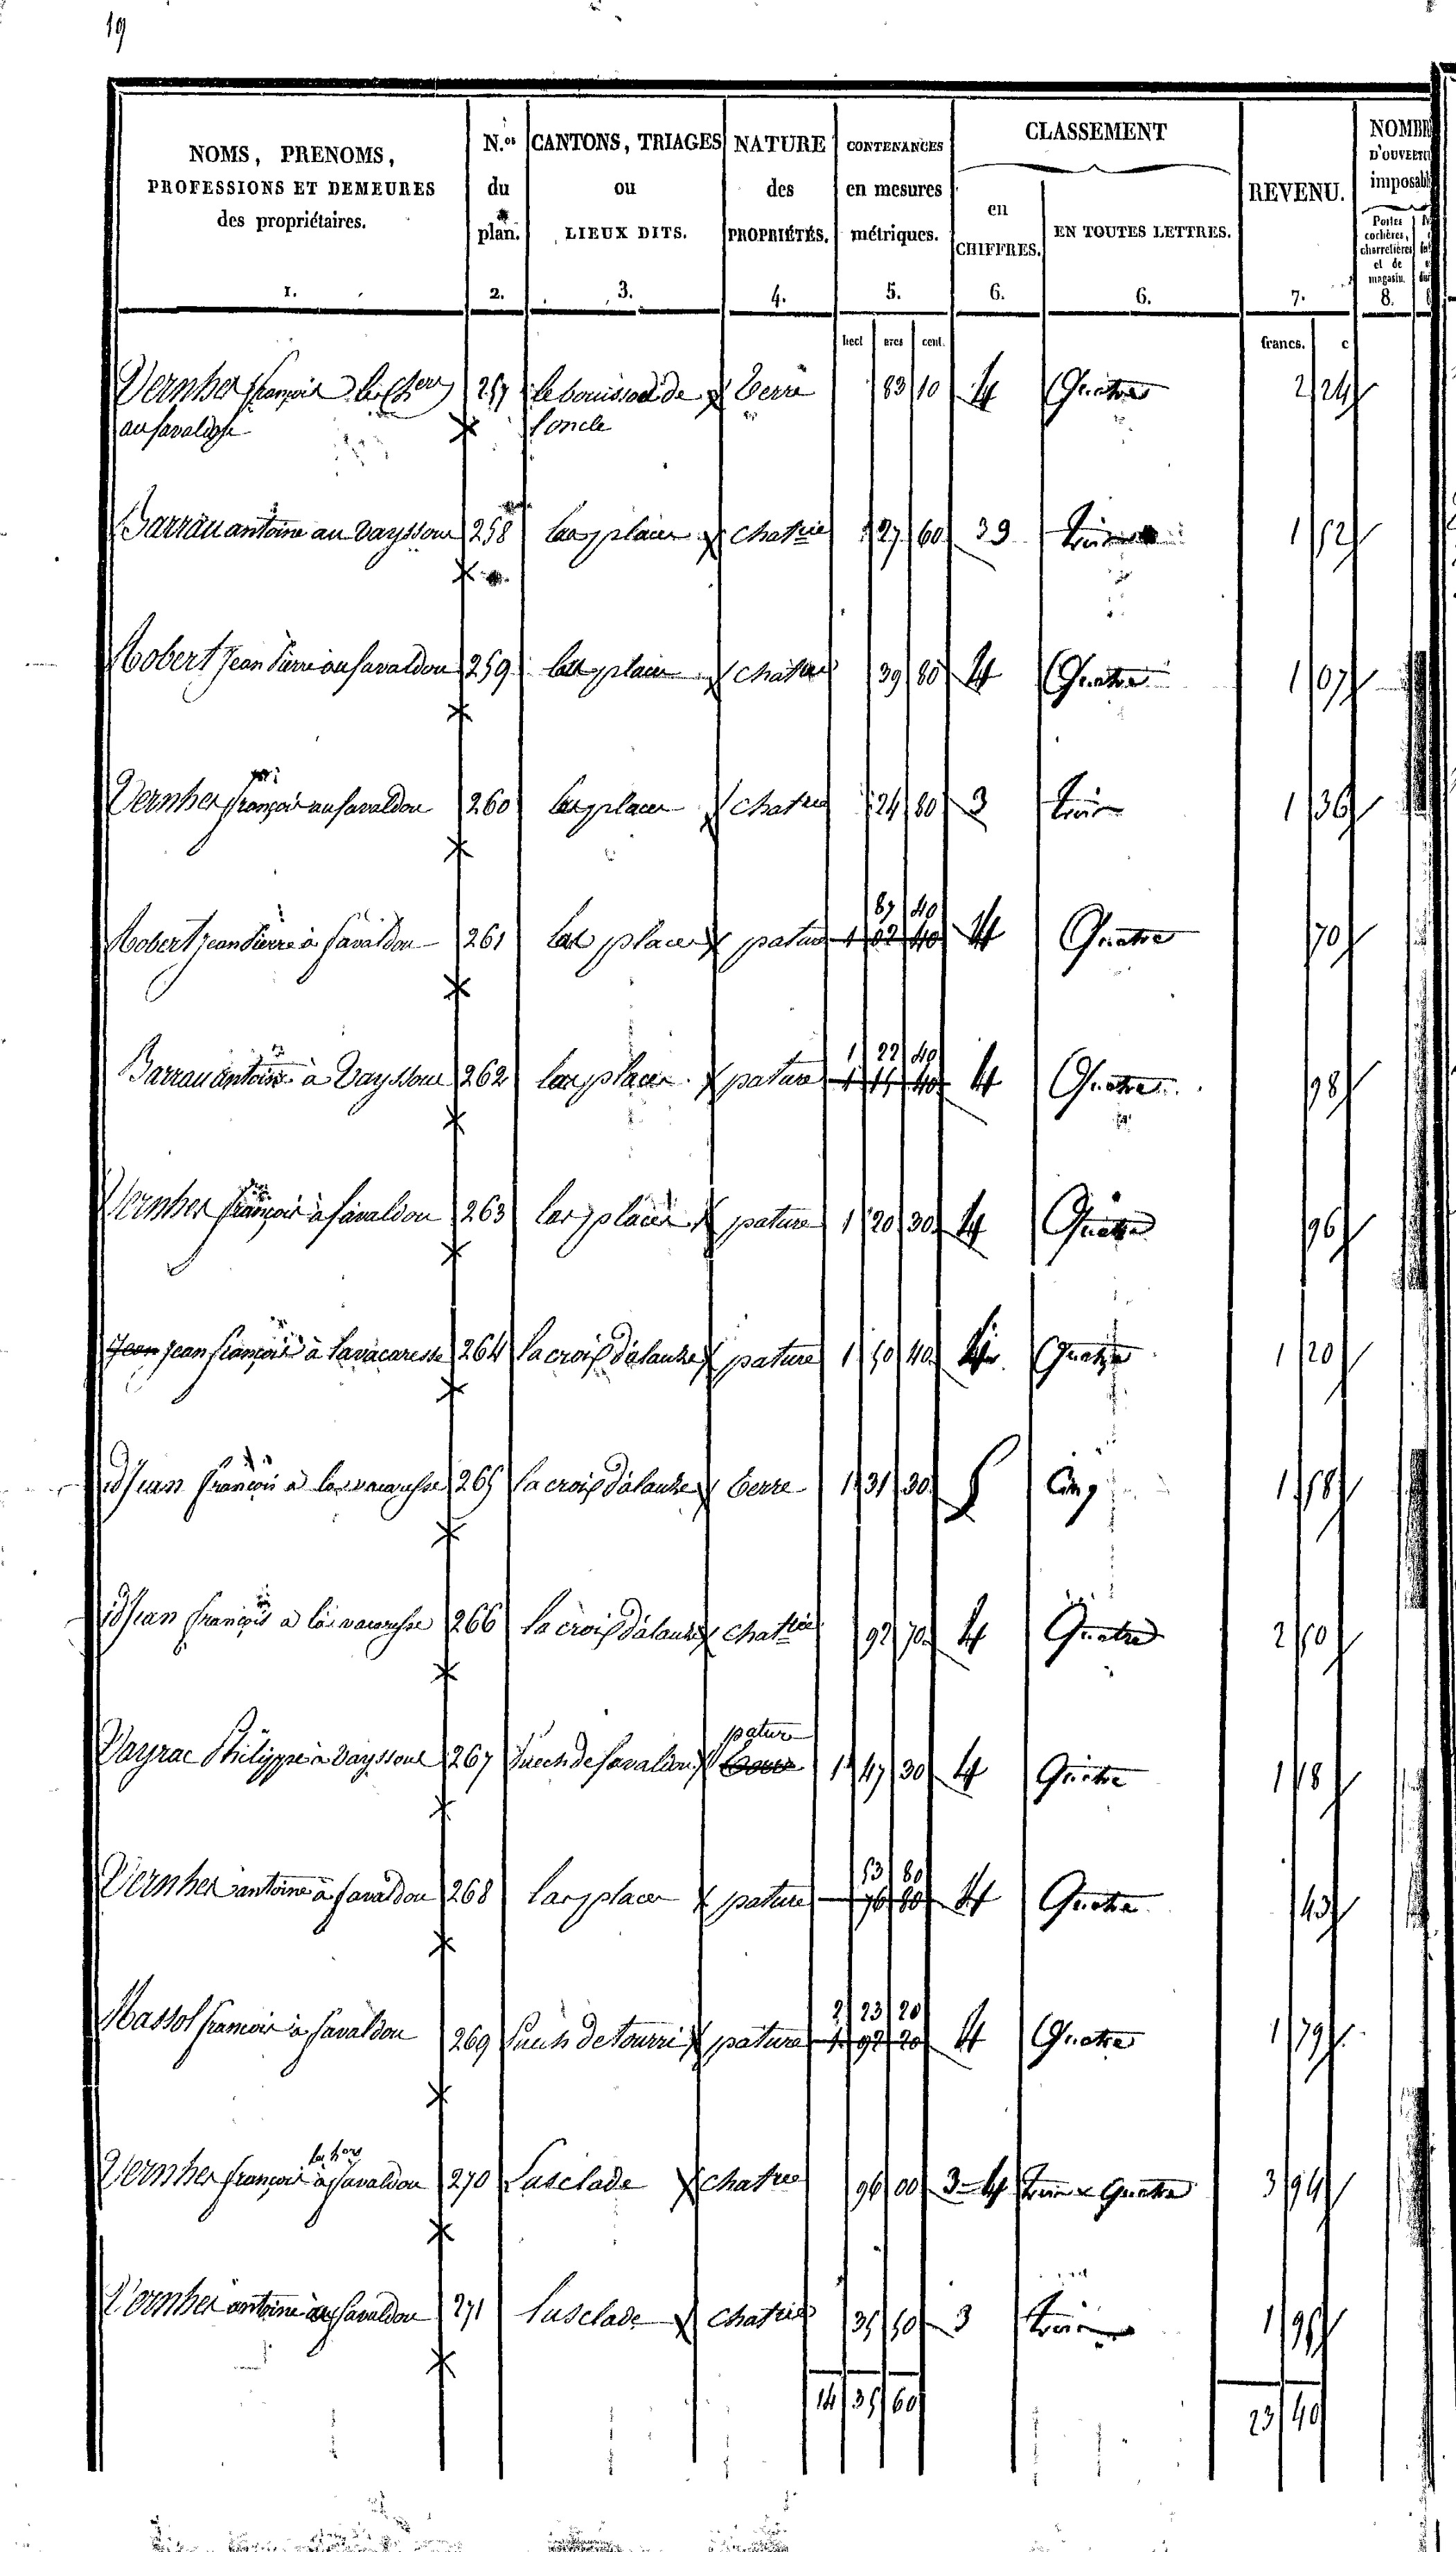 19
NOMS, PRENOMS,
PROFESSIONS ET DEMEURES
des propriétaires.
1.
N.os
du
plan.
2.
CANTONS, TRIAGES
ou
LIEUX DITS.
3.
NATURE
des
PROPRIÉTÉS.
4.
CONTENANCES
en mesures
métriques.
5.
CLASSEMENT
en
CHIFFRES.
6.
EN TOUTES LETTRES.
6.
REVENU.
7.
NOMBR
D'OUVERTU
imposabl
Portes
cochères,
charretières
et de
magasin.
8.
hect ares cent. francs. c
Vernher françois 257 de terre 83 10 4 Quatre 2 24
Barrau antoine au Vayssour 258 las places chatrée 27 60 3 trois 1 52
Robert jean Pierre au favaldou 259 las places chatrée 39 80 4 Quatre 1 07
Vernher françois au favaldou 260 las places chatrée 24 80 3 trois 1 36
87 40
Robert jean Pierre à favaldou 261 las places pature 1 02 40 4 Quatre 70
1 22 40
Barrau antoine à Vayssour 262 las places pature 4 Quatre 98
Vernher françois à favaldou 263 las places pature 1 20 30 4 Quatre 96
Jean jean françois à Lavacaresse 264 la croix pature 1 50 40 4 Quatre 1 20
jean françois a la vacaresse 265 la croix terre 1 31 30 5 Cinq 1 58
jean françois a la vacaresse 266 la croix chatrée 92 70 4 Quatre 2 50
pature
Vayrac Philippe à Vayssour 267 Puech de favaldou 1 47 30 4 Quatre 1 18
53 80
Vernher antoine à favaldou 268 las places pature 76 80 4 Quatre 43
2 23 20
Massol francois à favaldou 269 Puech de pature 1 92 20 4 Quatre 1 79
Vernher françois à favaldou 270 Lusclade chatrée 96 00 3-4 trois & Quatre 3 94
Vernher antoine au favaldou 271 Lusclade chatrée 35 50 3 trois 1 95
14 35 60 23 40